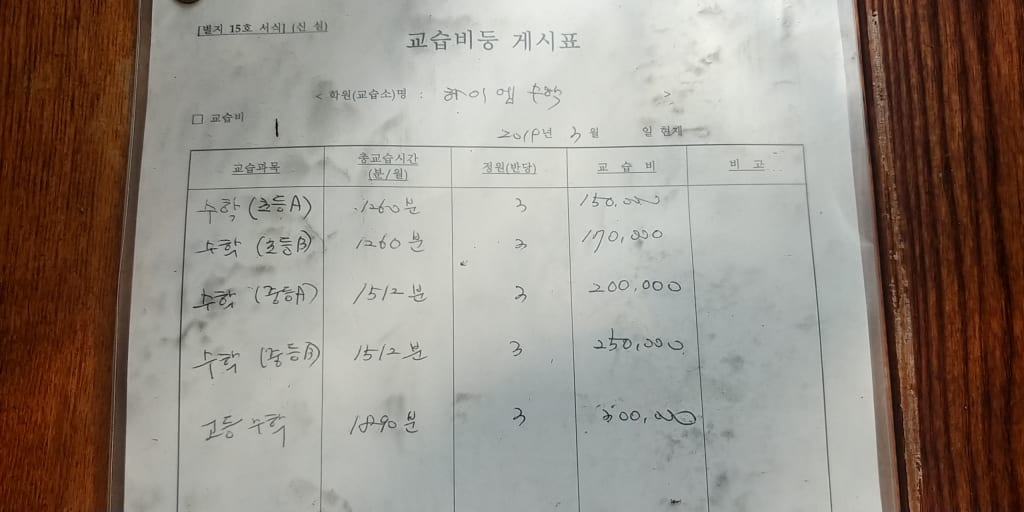 [별지 15호 서식] (신 설)
교습비등 게시표
< 학원(교습소)명 : 하이엠 수학 >
□ 교습비
2019년 3월 일 현재
교습과목 총교습시간 (분/월) 정원(반당) 교 습 비 비 고
수학 (초등A) 1260분 3 150,000
수학 (초등B) 1260분 3 170,000
수학 (중등A) 1512분 3 200,000
수학 (중등B) 1512분 3 250,000
고등 수학 1890분 3 300,000